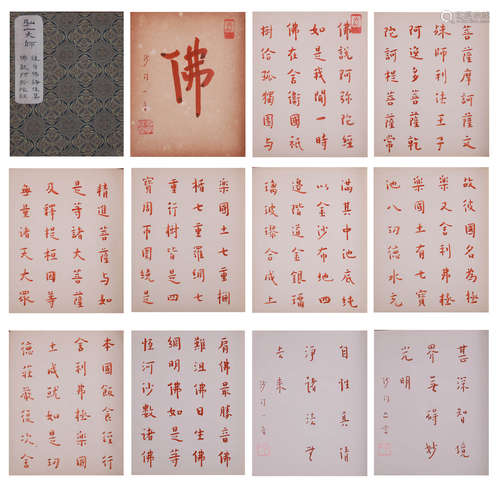 弘一大師
佛
沙門一音
佛說阿彌陀經
如是我聞一時
佛在舍衛國祇
樹給孤獨園與
菩薩摩訶薩文
殊師利法王子
阿逸多菩薩乾
陀訶提菩薩常
精進菩薩與如
是等諸大菩薩
及釋提桓因等
無量諸天大眾
樂國土七重欄
楯七重羅網七
重行樹皆是四
寶周帀圍繞是
滿其中池底純
以金沙布地四
邊階道金銀瑠
璃玻瓈合成上
故彼國名為極
樂又舍利弗極
樂國土有七寶
池八功德水充
本國飯食經行
舍利弗極樂國
土成就如是功
德莊嚴復次舍
肩佛最勝音佛
難沮佛日生佛
網明佛如是等
恒河沙數諸佛
自性真清
淨諸法無
去來
沙門一音
甚深智境
界無礙妙
光明